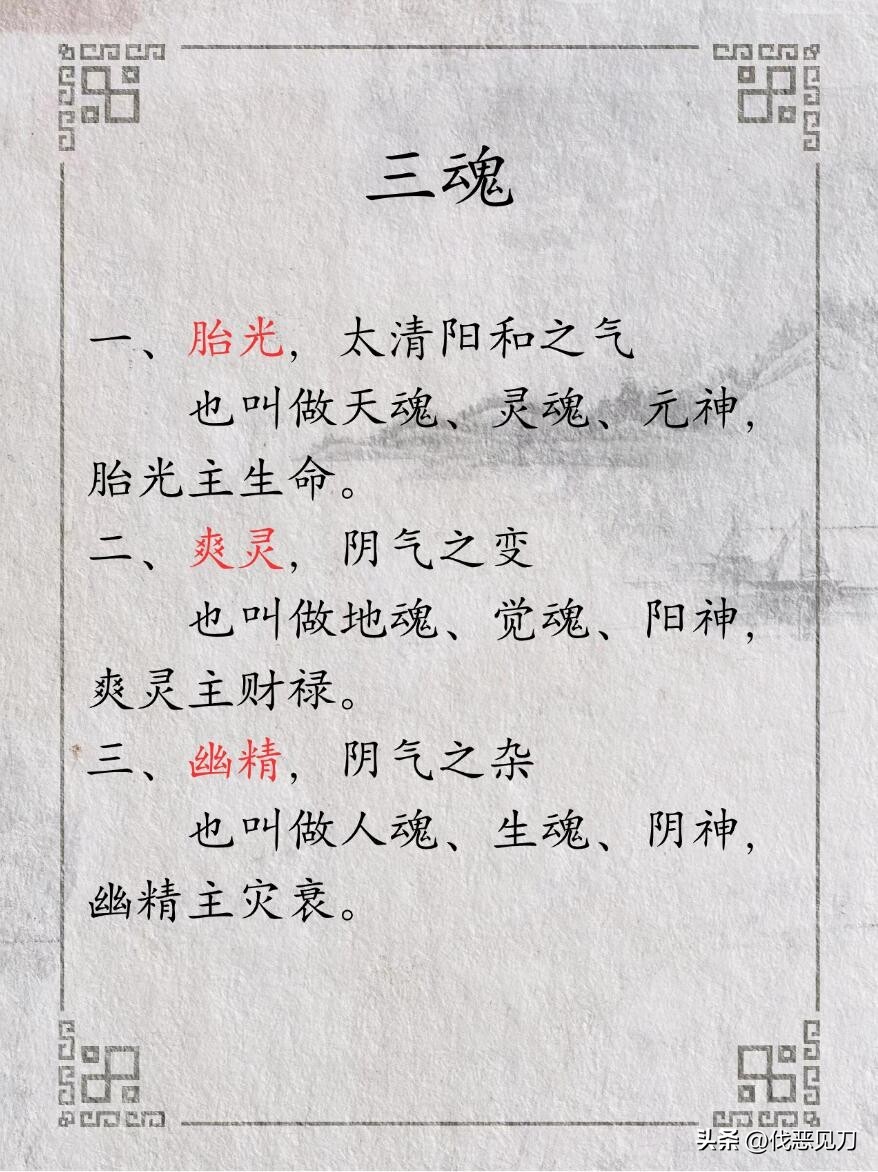 三魂
一、胎光，太清阳和之气
也叫做天魂、灵魂、元神，
胎光主生命。
二、爽灵，阴气之变
也叫做地魂、觉魂、阳神，
爽灵主财禄。
三、幽精，阴气之杂
也叫做人魂、生魂、阴神，
幽精主灾衰。
头条 @伐恶见刀